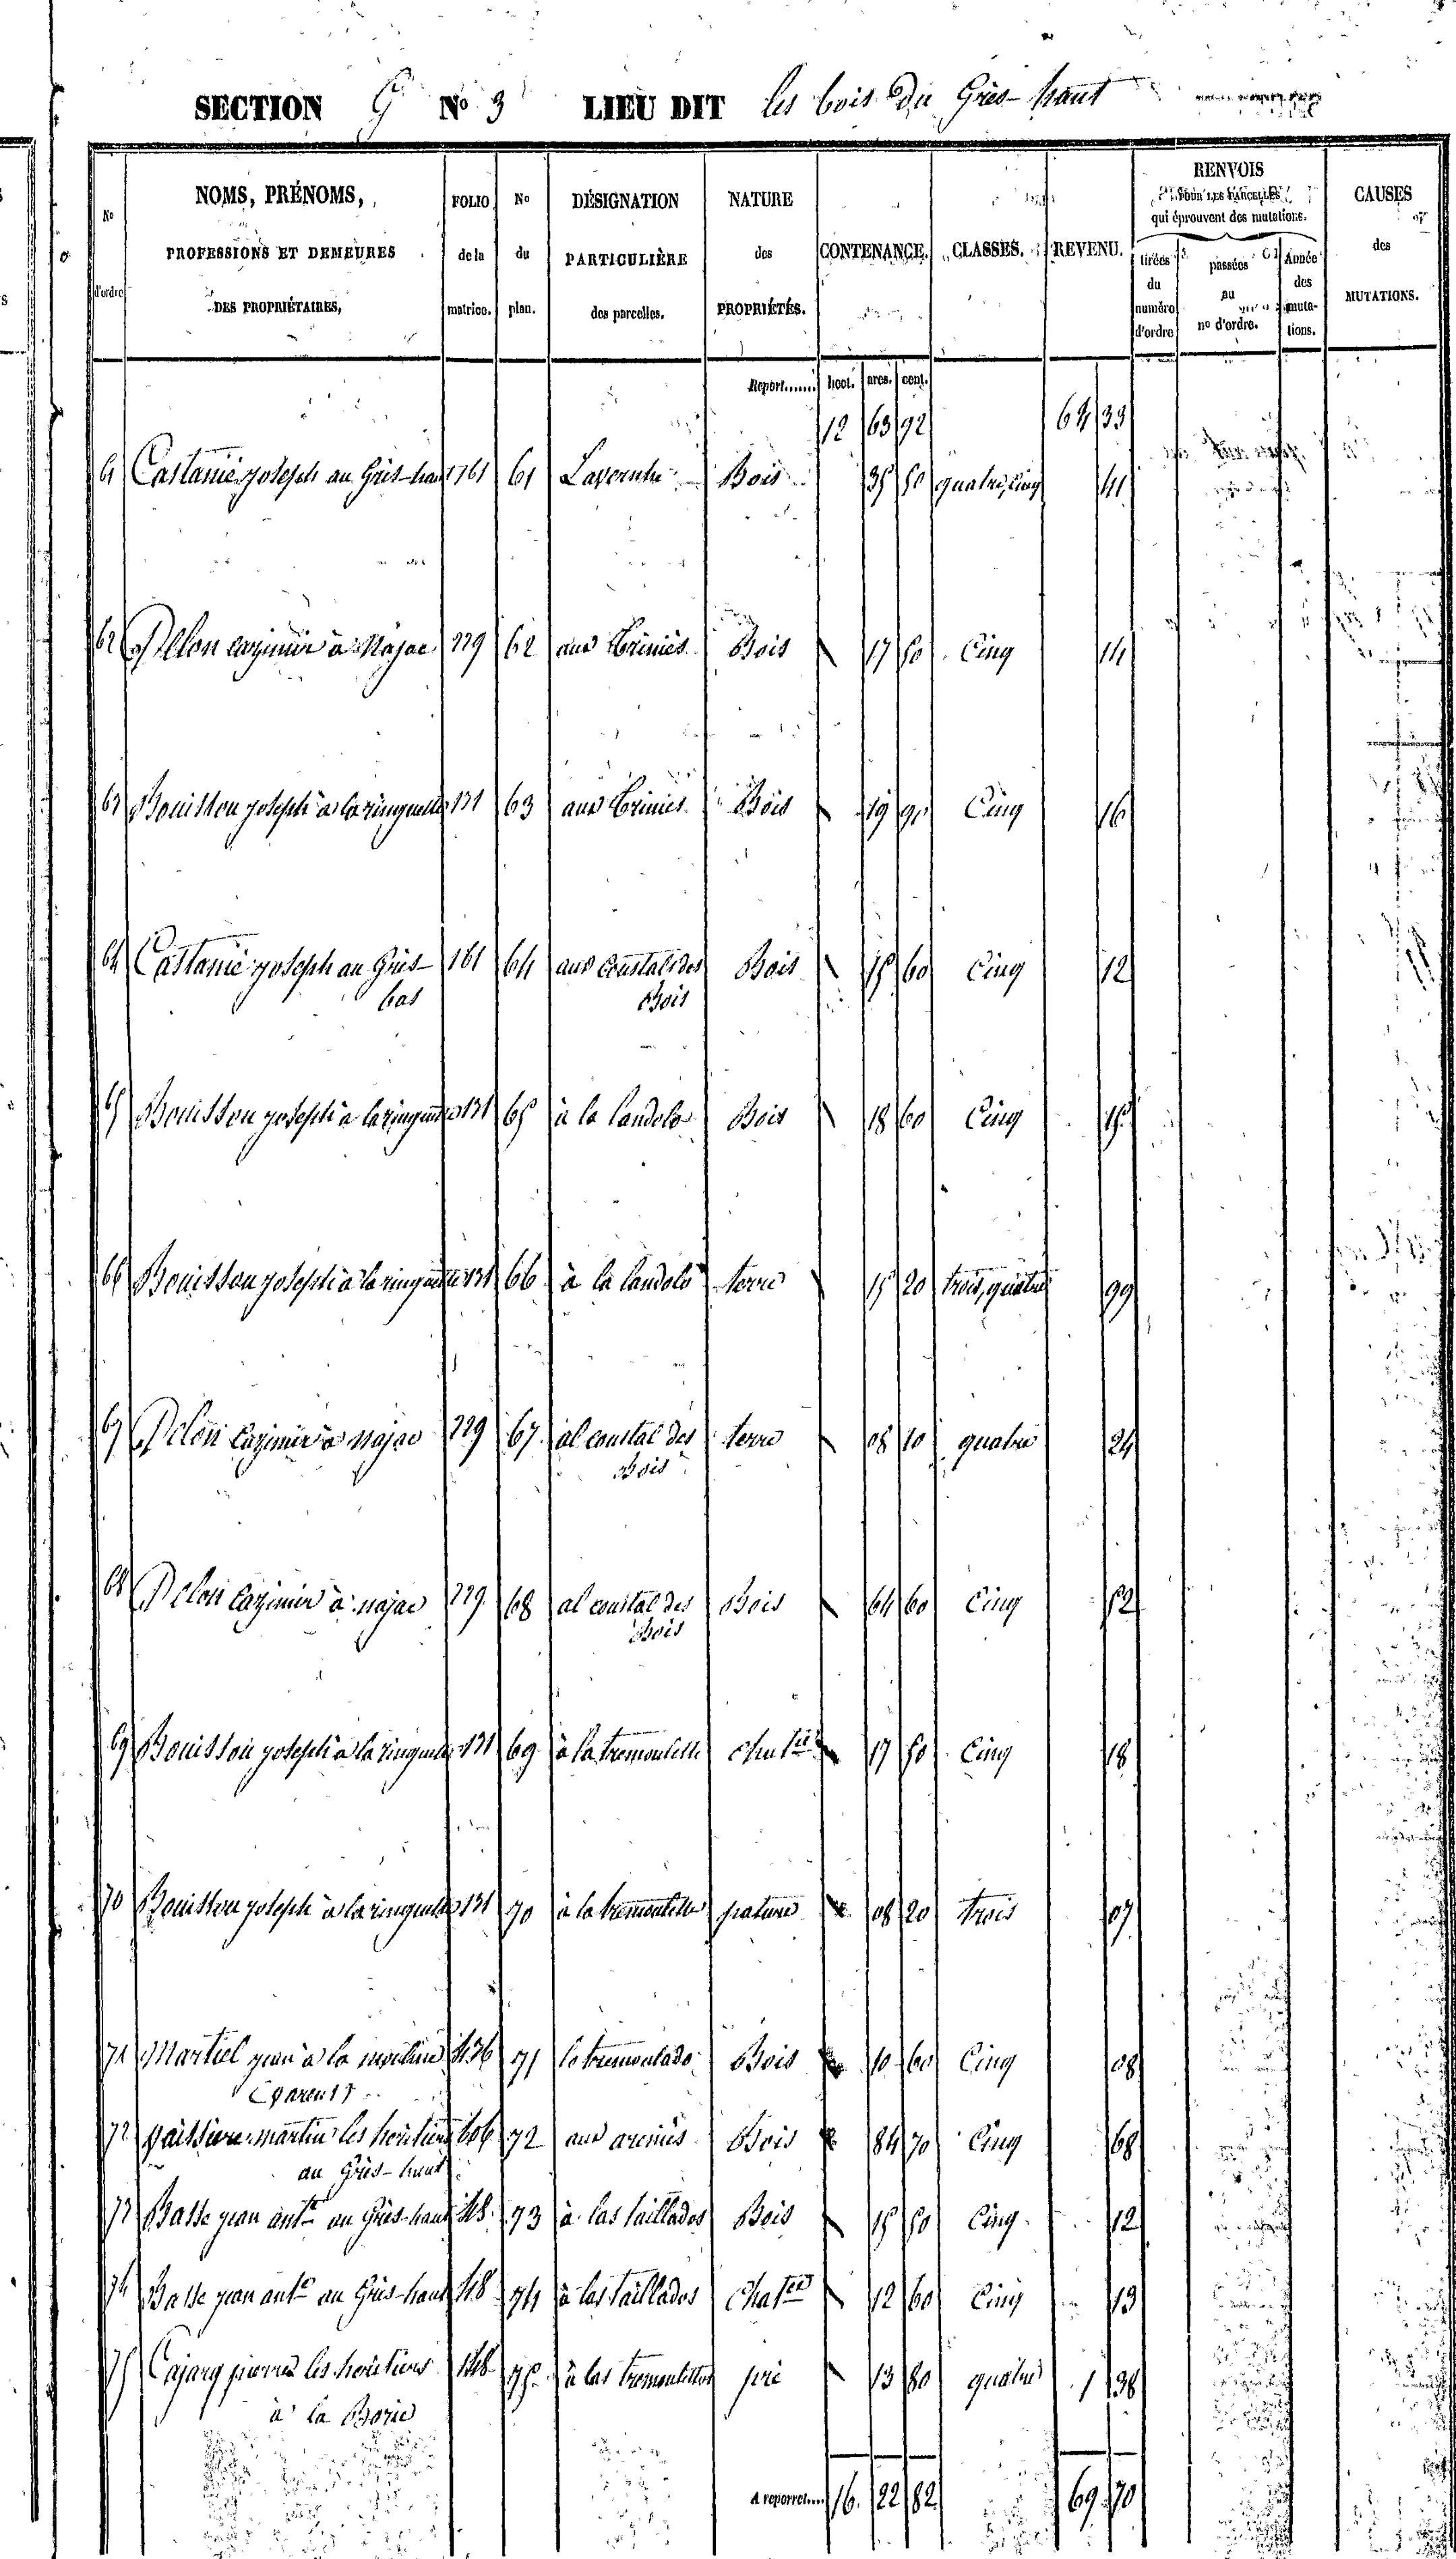 SECTION G No 3 LIEU DIT les bois du Grès-haut
No d'ordre
NOMS, PRÉNOMS, PROFESSIONS ET DEMEURES DES PROPRIÉTAIRES,
FOLIO de la matrice.
No du plan.
DÉSIGNATION PARTICULIÈRE des parcelles.
NATURE des PROPRIÉTÉS.
CONTENANCE.
CLASSES.
REVENU.
RENVOIS POUR LES PARCELLES qui éprouvent des mutations.
tirées du numéro d'ordre
passées au no d'ordre.
Année des muta-tions.
CAUSES des MUTATIONS.
Report....... hect. ares. cent.
12 63 92 64 33
61 Castanié joseph au Grès-haut 161 61 Bois 35 50 quatre, cinq 41
62 Delon cazimir à Najac 229 62 aux Bois 17 50 Cinq 14
63 Bouisson joseph à la 131 63 aux Bois 19 90 Cinq 16
64 Castanié joseph au Grès- 161 64 aux Coustals des Bois 15 60 Cinq 12
bas Bois
65 Bouisson joseph à la 131 65 à la Landolo Bois 18 60 Cinq 15
66 Bouisson joseph à la 131 66 à la landolo terre 15 20 trois, quatre 99
67 Delon Cazimir à Najac 229 67 al coustal des terre 08 10 quatre 24
Bois
68 Delon Cazimir à najac 229 68 al coustal des Bois 64 60 Cinq 52
Bois
69 Bouisson joseph à la 131 69 à la tremoulette Chatre 17 50 Cinq 18
70 Bouisson joseph à la 131 70 à la tremoulette pature 08 20 trois 07
71 Martiel jean à la 436 71 Bois 10 60 Cinq 08
72 martin les héritiers 606 72 aux Bois 84 70 Cinq 68
au Grès-haut
73 Basse jean ante au Grès-haut 48 73 à las taillados Bois 15 50 Cinq 12
74 Basse jean ante au Grès-haut 48 74 à las taillados Chatre 12 60 Cinq 13
75 Cajarq pierre les héritiers 148 75 à las pré 13 80 quatre 1 38
à la Borie
A reporter.... 16 22 82 69 70